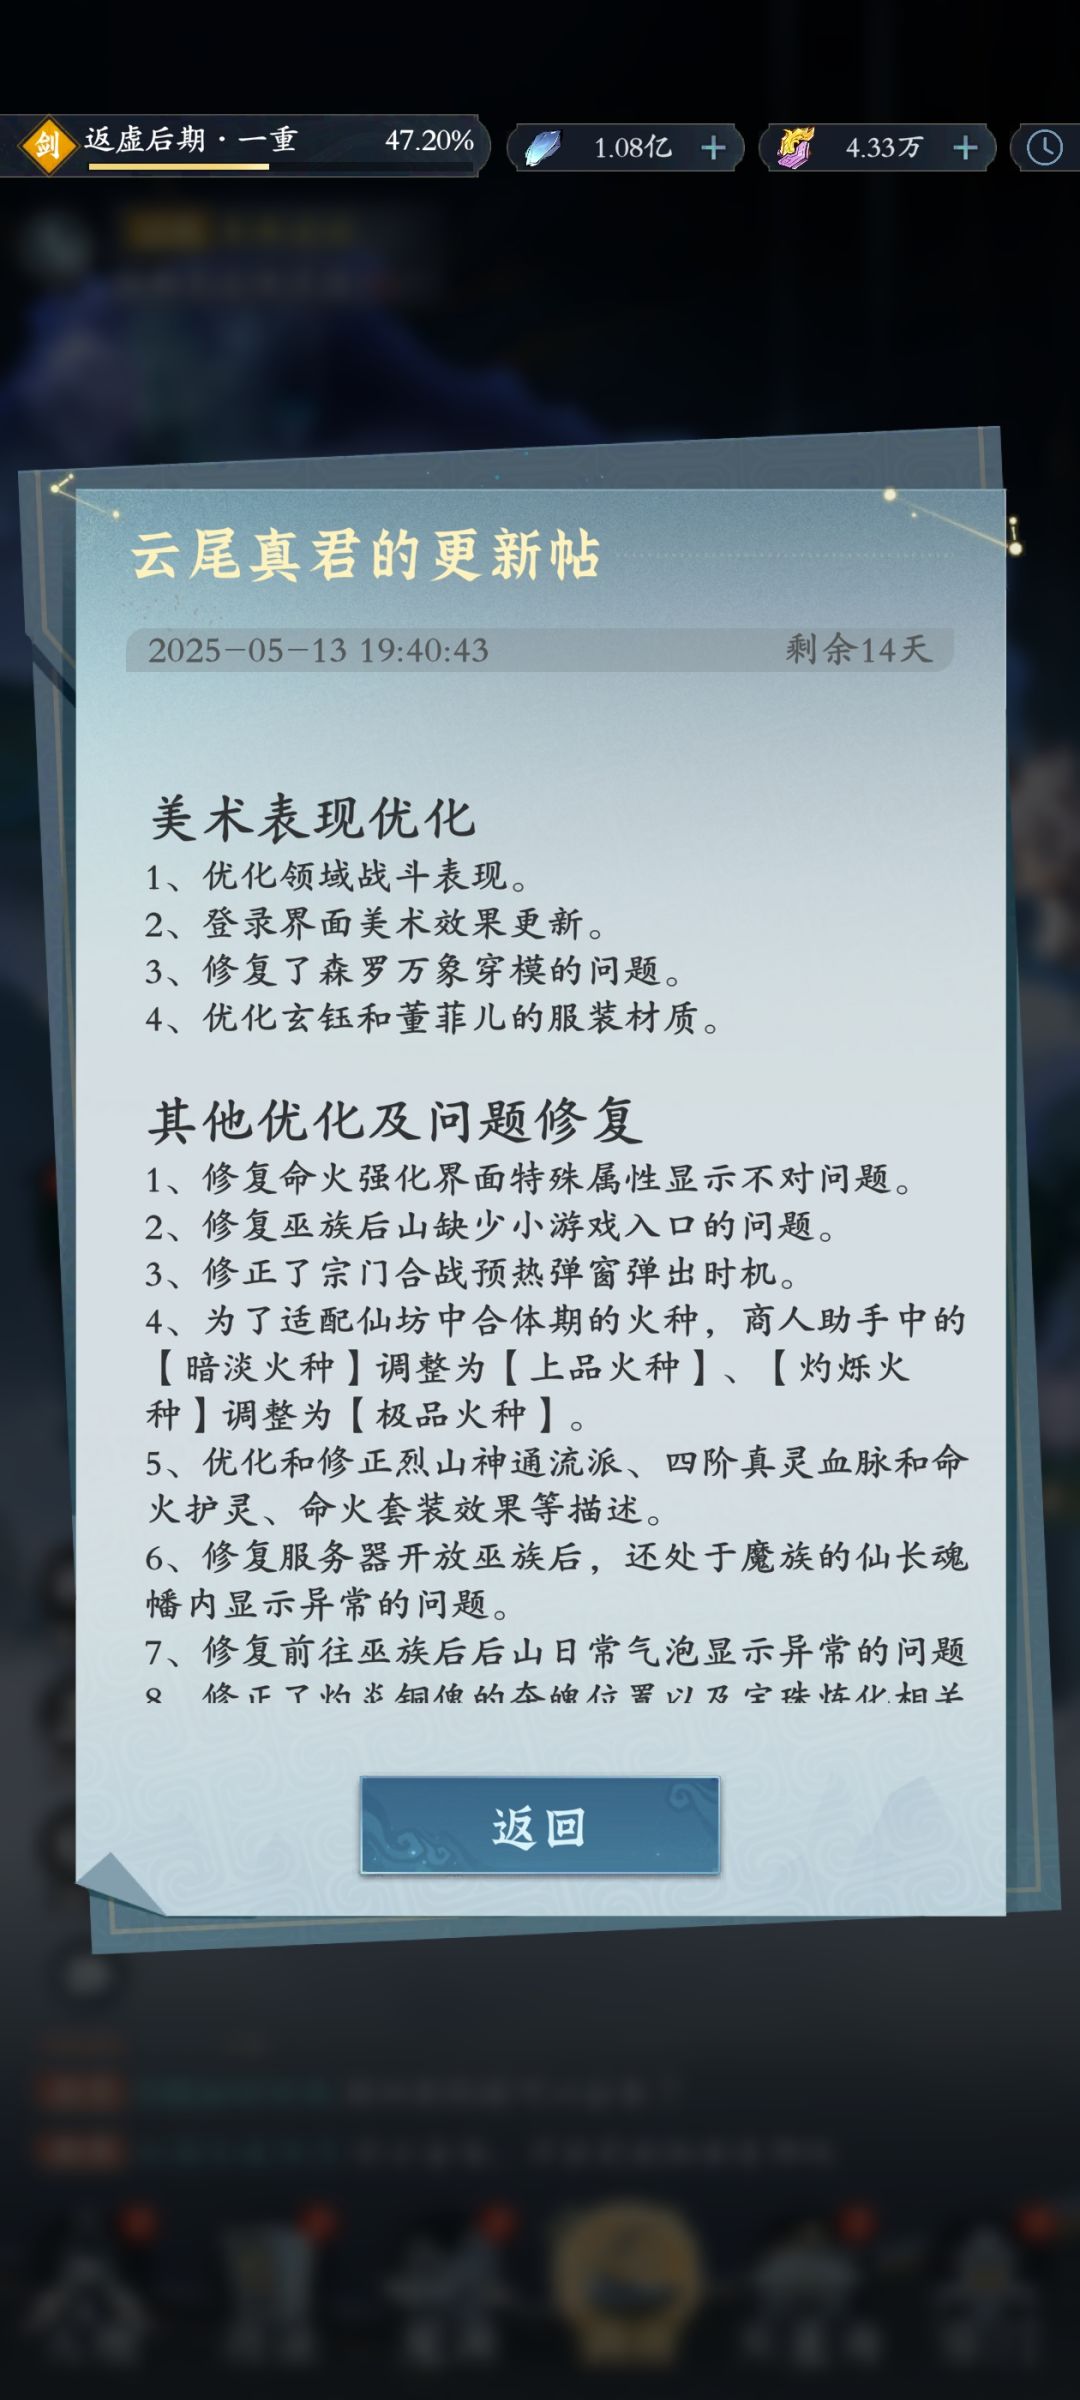 剑 返虚后期·一重 47.20% 1.08亿 4.33万
云尾真君的更新帖
2025-05-13 19:40:43 剩余14天
美术表现优化
1、优化领域战斗表现。
2、登录界面美术效果更新。
3、修复了森罗万象穿模的问题。
4、优化玄钰和董菲儿的服装材质。
其他优化及问题修复
1、修复命火强化界面特殊属性显示不对问题。
2、修复巫族后山缺少小游戏入口的问题。
3、修正了宗门合战预热弹窗弹出时机。
4、为了适配仙坊中合体期的火种，商人助手中的
【暗淡火种】调整为【上品火种】、【灼烁火
种】调整为【极品火种】。
5、优化和修正烈山神通流派、四阶真灵血脉和命
火护灵、命火套装效果等描述。
6、修复服务器开放巫族后，还处于魔族的仙长魂
幡内显示异常的问题。
7、修复前往巫族后后山日常气泡显示异常的问题
8、修正了灼炎铜傀的夺魄位置以及宝珠炼化相关
返回